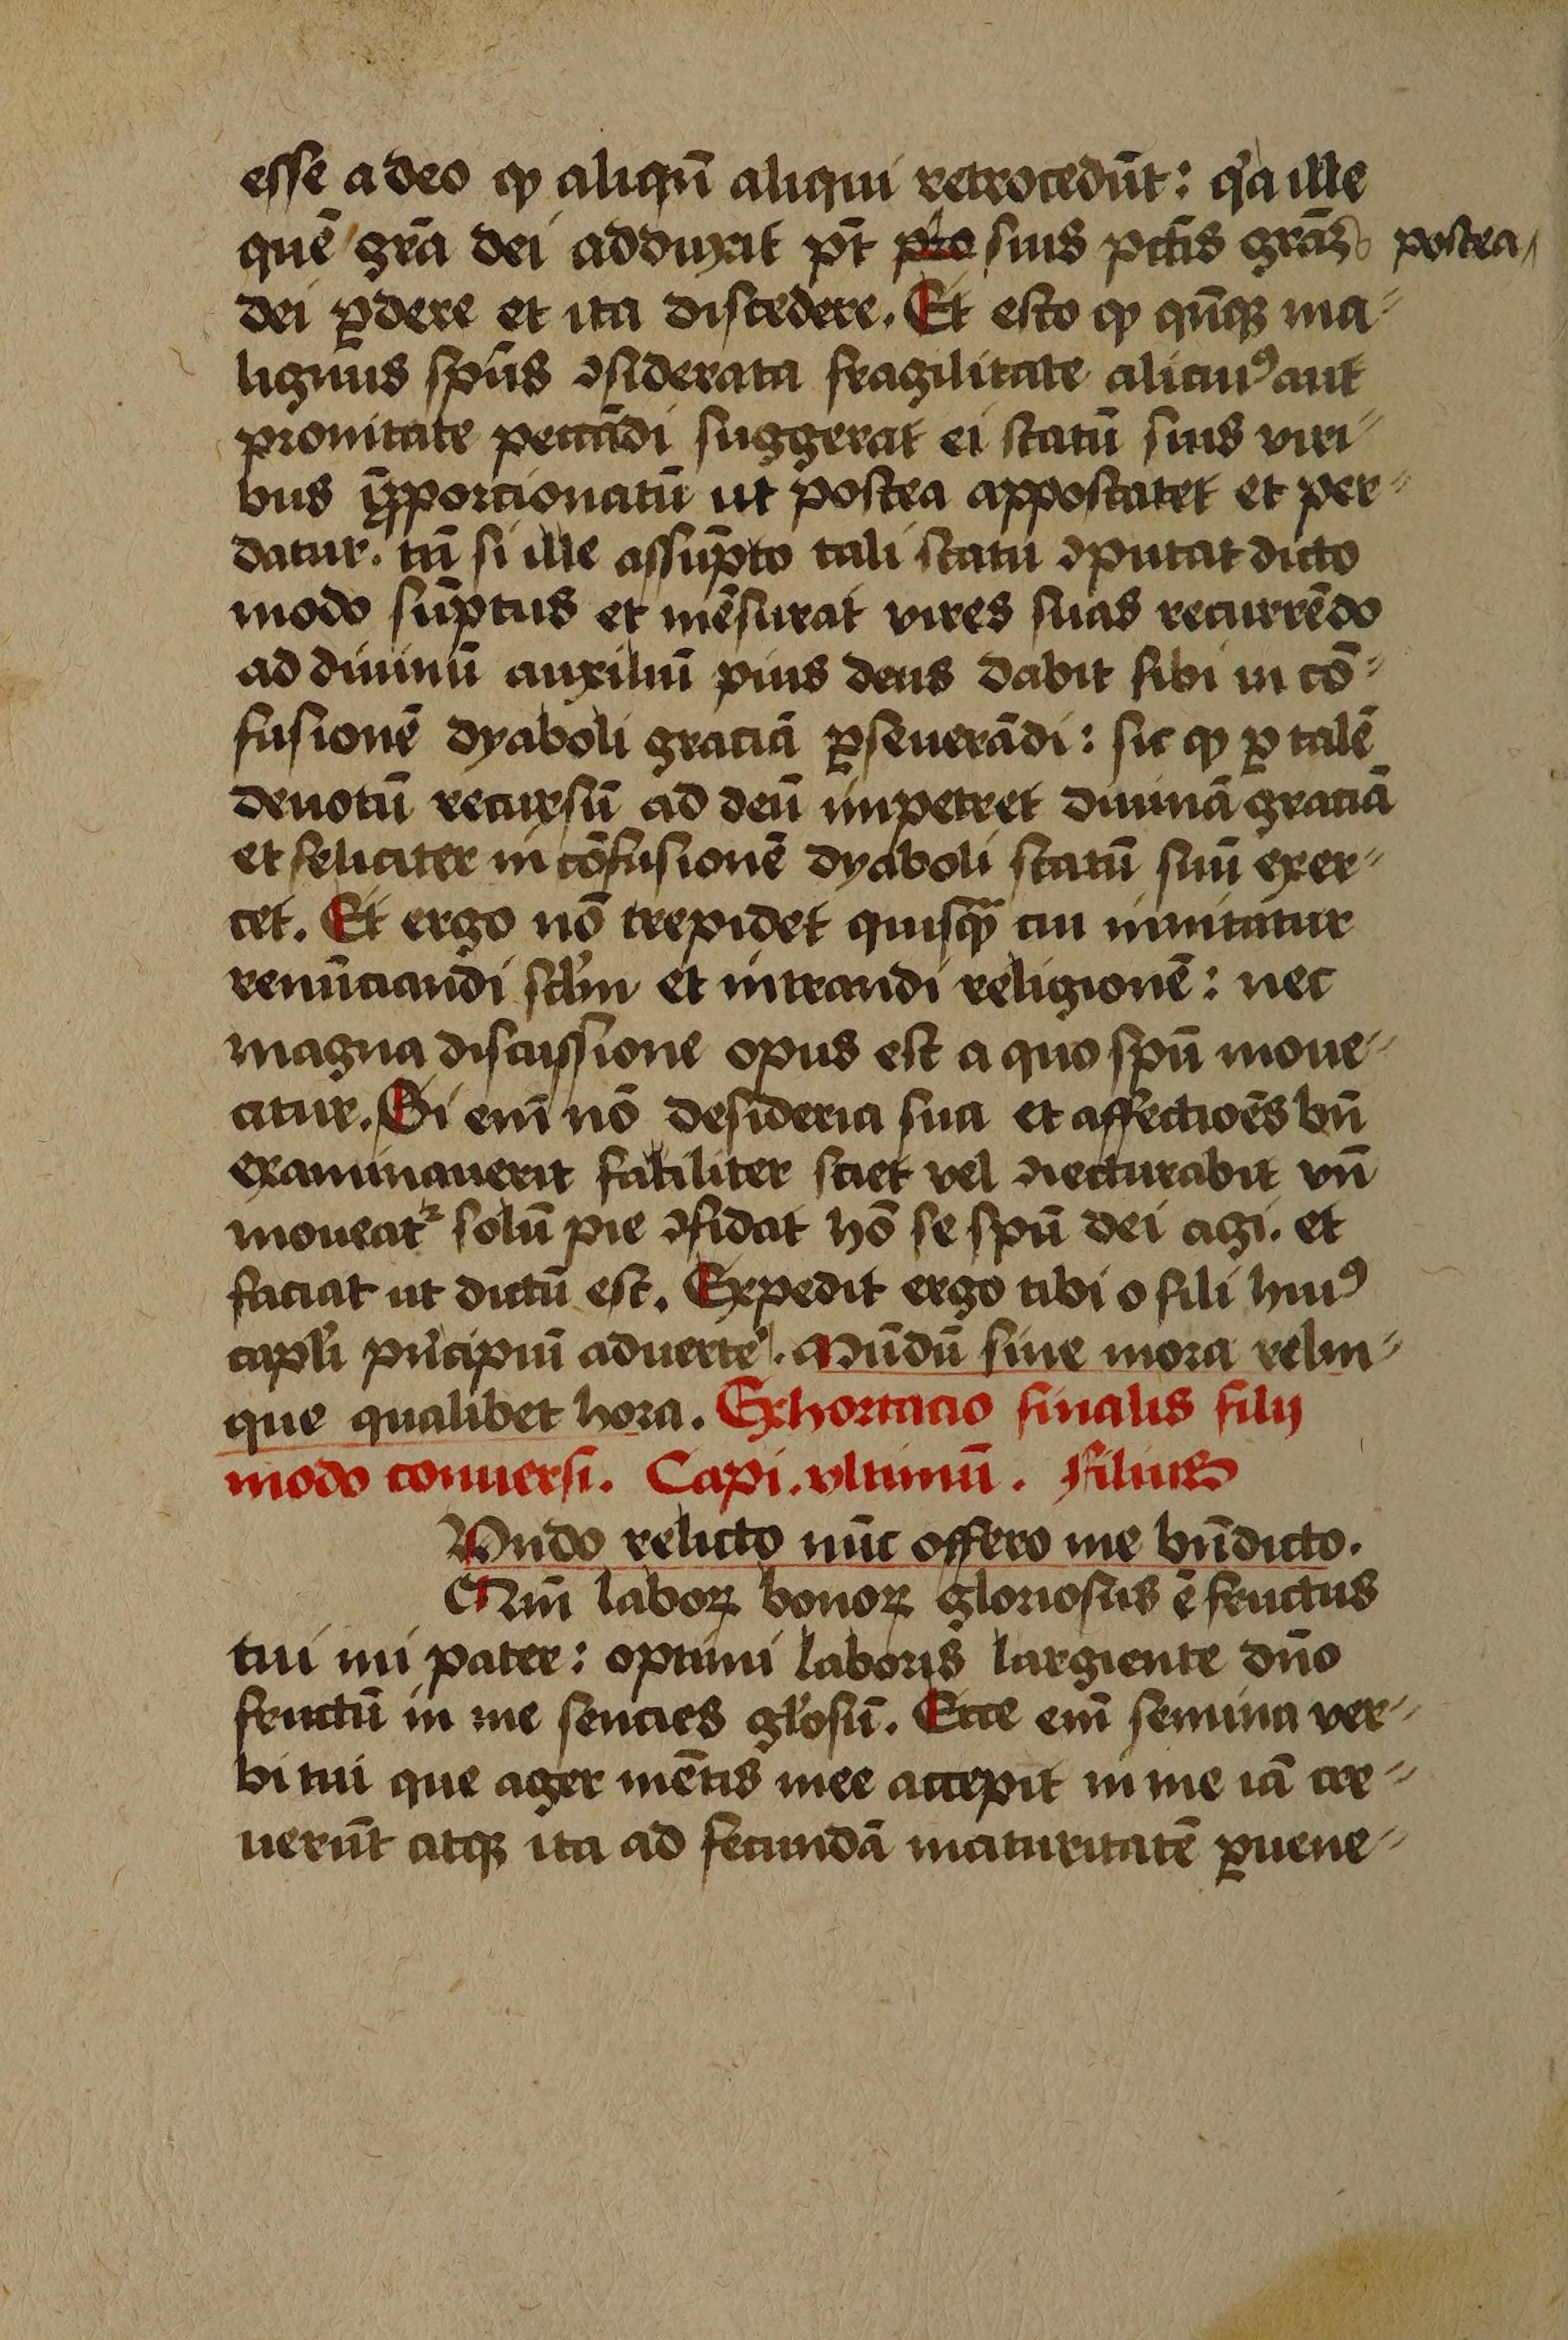 esse a deo ꝙ aliqn̄ aliqui retrocedūt: qͥa ille
quē gr̄a dei adduxit pt̄ suis pctīs gr̄az postea
dei ꝑdere et ita discedere. Et esto ꝙ qn̄qꝫ ma⸗
lignus spūs ꝯsiderata fragilitate alicuiꝰ aut
pronitate peccādi suggerat ei statū suis viri⸗
bus īꝓporcionatū ut postea appostatet et per⸗
datur. tn̄ si ille assūpto tali statu ꝯputat dicto
modo sūptus et mēsurat vires suas recurrēdo
ad diuinū auxiliū pius deus dabit sibi in cō⸗
fusionē dyaboli graciā ꝑseuerādi: sic ꝙ ꝑ talē
deuotū recursū ad deū impetret diuinā graciā
et feliciter in cōfusionē dyaboli statū suū exer⸗
cet. Et ergo nō trepidet quisqᷓ cui īmitatur
renūciandi sclō et intrandi religionē: nec
magna discussione opus est a quo spū moue⸗
atur. Si enī nō desideria sua et affectiōēs bn̄
examinauerit faciliter sciet vel ꝯiecturabit vn̄
moueatᷣ solū pie ꝯfidat hō se spū dei agi. et
faciat ut dictū est. Expedit ergo tibi o fili huiꝰ
capl̄i pͥncipiū aduerte. Mūdū sine mora relin⸗
que qualibet hora. Exhortacio finalis filij
modo conuersi. Capi. vltimū. Filius
Mundo relicto nūc offero me bn̄dicto.
Qm̄ laboꝝ bonoꝝ gloriosus ē fructus
tui mi pater: optimi laboris largiente dn̄o
fructū in me sencies gl̄osū. Ecce enī semina ver⸗
bi tui que ager mētis mee accepit in me iā cre⸗
uerūt atqꝫ ita ad fecundā maturitatē ꝑuene⸗